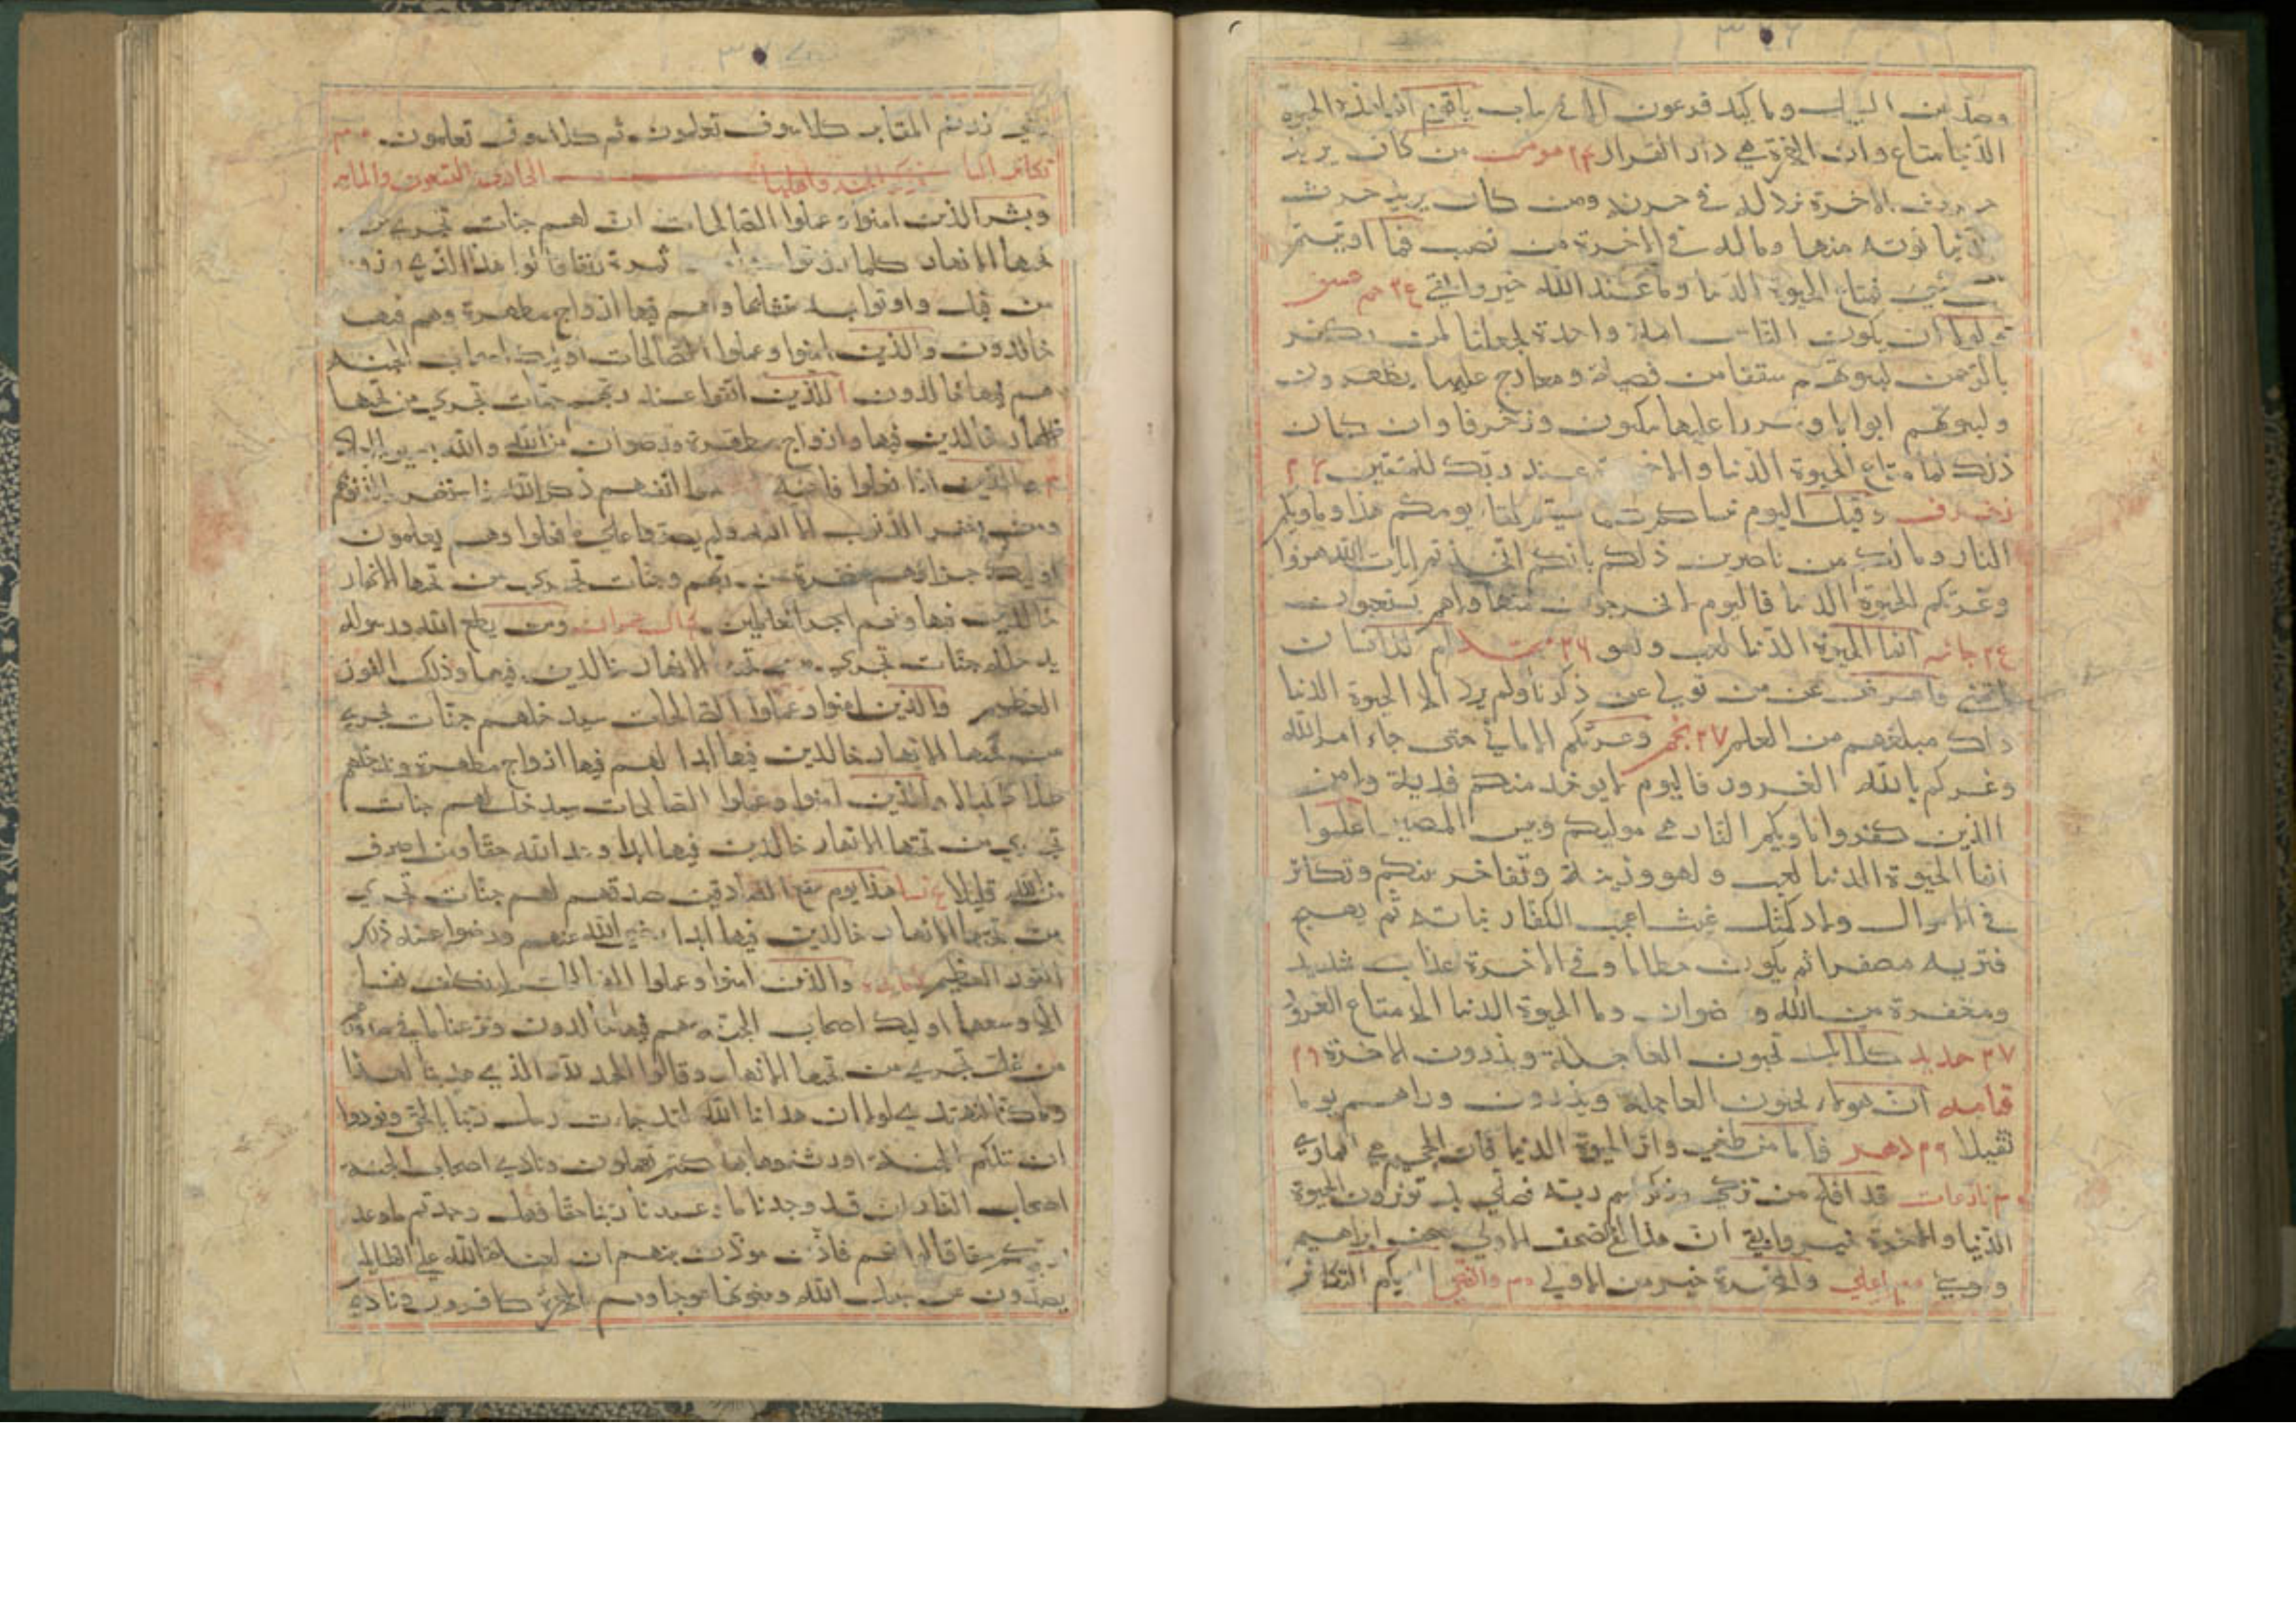 وصد عن السبيل وما كيد فرعون الا في تباب يا قوم انما هذه الحيوة
الدنيا متاع وان الاخرة هي دار القرار ٢٤ مومن من كان يريد
حرث الاخرة نزد له في حرثه ومن كان يريد حرث
الدنيا نوته منها وماله في الاخرة من نصيب فما اوتيتم
من شيء فمتاع الحيوة الدنيا وما عند الله خير وابقى ٢٤ حم عسق
ولولا ان يكون الناس امة واحدة لجعلنا لمن يكفر
بالرحمن لبيوتهم سقفا من فضة ومعارج عليها يظهرون
ولبيوتهم ابوابا وسررا عليها يتكون وزخرفا وان كان
ذلك لما متاع الحيوة الدنيا والاخرة عند ربك للمتقين
زخرف وقيل اليوم ننساكم كما نسيتم لقاء يومكم هذا وماويكم
النار وما لكم من ناصرين ذلكم بانكم اتخذتم ايات الله هزوا
وغرتكم الحيوة الدنيا فاليوم لا يخرجون منها ولا هم يستعتبون
جاثيه انما الحيوة الدنيا لعب ولهو ٢٦ ام للانسان
ما تمنى فاعرض عن من تولى عن ذكرنا ولم يرد الا الحيوة الدنيا
ذلك مبلغهم من العلم ٢٧ نجم وغرتكم الاماني حتى جاء امر الله
وغركم بالله الغرور فاليوم لا يوخذ منكم فدية ولا من
الذين كفروا ماويكم النار هي موليكم وبيس المصير اعلموا
انما الحيوة الدنيا لعب ولهو وزينة وتفاخر بينكم وتكاثر
في الاموال والاولاد كمثل غيث اعجب الكفار نباته ثم يهيج
فتريه مصفرا ثم يكون حطاما وفي الاخرة عذاب شديد
ومغفرة من الله ورضوان وما الحيوة الدنيا الا متاع الغرور
٢٧ حديد كلا بل تحبون العاجلة وتذرون الاخرة ٢٩
قيامه ان هولاء يحبون العاجلة ويذرون وراهم يوما
ثقيلا ٢٩ دهر فاما من طغى واثر الحيوة الدنيا فان الجحيم هي الماوى
نازعات قد افلح من تزكى وذكر اسم ربه فصلى بل توثرون الحيوة
الدنيا والاخرة خير وابقى ان هذا لفي الصحف الاولى صحف ابراهيم
وموسى اعلى وللاخرة خير من الاولى والضحى الهيكم التكاثر
حتى زرتم المقابر كلا سوف تعلمون ثم كلا سوف تعلمون
تكاثر الباب في ذكر الجنة واهلها الحادي والتسعون والمايه
وبشر الذين امنوا وعملوا الصالحات ان لهم جنات تجري من
تحتها الانهار كلما رزقوا منها من ثمرة رزقا قالوا هذا الذي رزقنا
من قبل واوتوا به متشابها ولهم فيها ازواج مطهرة وهم فيها
خالدون والذين امنوا وعملوا الصالحات اوليك اصحاب الجنة
هم فيها خالدون للذين اتقوا عند ربهم جنات تجري من تحتها
الانهار خالدين فيها وازواج مطهرة ورضوان من الله والله بصير بالعباد
والذين اذا فعلوا فاحشة او ظلموا انفسهم ذكروا الله فاستغفروا لذنوبهم
ومن يغفر الذنوب الا الله ولم يصروا على ما فعلوا وهم يعلمون
اوليك جزاوهم مغفرة من ربهم وجنات تجري من تحتها الانهار
خالدين فيها ونعم اجر العاملين ال عمران ومن يطع الله ورسوله
يدخله جنات تجري من تحتها الانهار خالدين فيها وذلك الفوز
العظيم والذين امنوا وعملوا الصالحات سيدخلهم جنات تجري
من تحتها الانهار خالدين فيها ابدا لهم فيها ازواج مطهرة وندخلهم
ظلا ظليلا والذين امنوا وعملوا الصالحات سيدخلهم جنات
تجري من تحتها الانهار خالدين فيها ابدا وعد الله حقا ومن اصدق
من الله قيلا نسا هذا يوم ينفع الصادقين صدقهم لهم جنات تجري
من تحتها الانهار خالدين فيها ابدا رضي الله عنهم ورضوا عنه ذلك
الفوز العظيم مايده والذين امنوا وعملوا الصالحات لا نكلف نفسا
الا وسعها اوليك اصحاب الجنة هم فيها خالدون ونزعنا ما في صدورهم
من غل تجري من تحتها الانهار وقالوا الحمد لله الذي هدينا لهذا
وما كنا لنهتدي لولا ان هدانا الله لقد جاءت رسل ربنا بالحق ونودوا
ان تلكم الجنة اورثتموها بما كنتم تعملون ونادى اصحاب الجنة
اصحاب النار ان قد وجدنا ما وعدنا ربنا حقا فهل وجدتم ما وعد
ربكم حقا قالوا نعم فاذن موذن بينهم ان لعنة الله على الظالمين
يصدون عن سبيل الله ويبغونها عوجا وهم بالاخرة كافرون ونادى